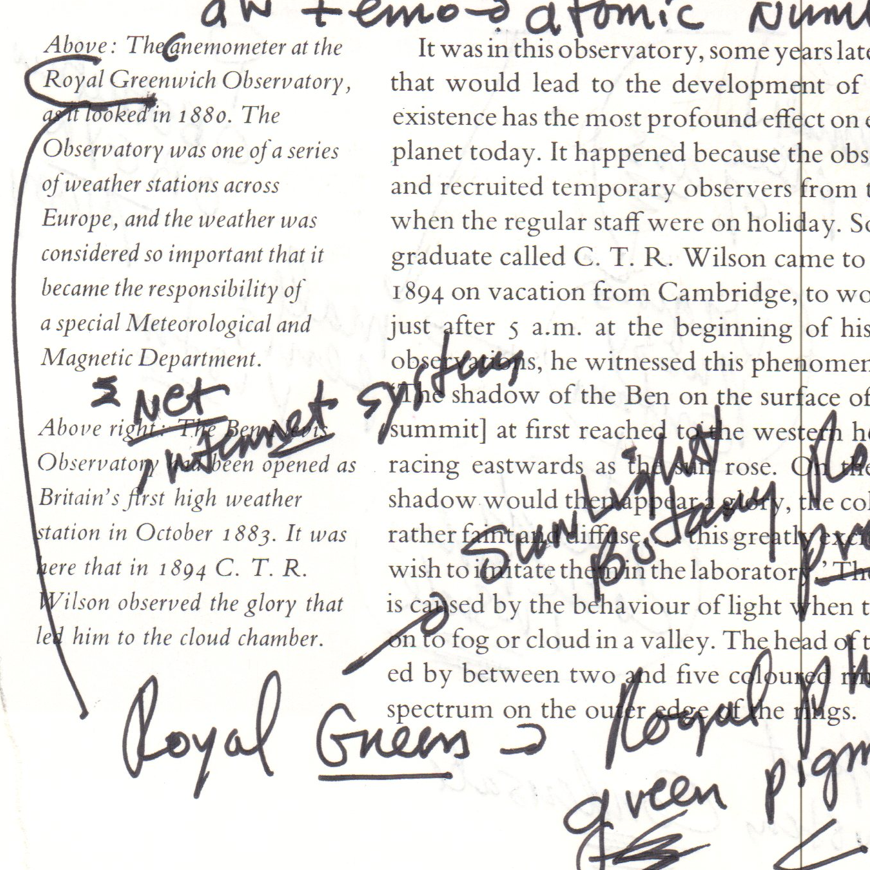 an temo → atomic Num
Above: The anemometer at the
Royal Greenwich Observatory,
as it looked in 1880. The
Observatory was one of a series
of weather stations across
Europe, and the weather was
considered so important that it
became the responsibility of
a special Meteorological and
Magnetic Department.
Net
internet system
Above right: The Ben Nevis
Observatory had been opened as
Britain's first high weather
station in October 1883. It was
here that in 1894 C. T. R.
Wilson observed the glory that
led him to the cloud chamber.
It was in this observatory, some years late
that would lead to the development of
existence has the most profound effect on e
planet today. It happened because the obs
and recruited temporary observers from t
when the regular staff were on holiday. So
graduate called C. T. R. Wilson came to
1894 on vacation from Cambridge, to wo
just after 5 a.m. at the beginning of his
observations, he witnessed this phenomen
'The shadow of the Ben on the surface of
summit] at first reached to the western ho
racing eastwards as the sun rose. On the
shadow would then appear a glory, the col
rather faint and diffuse. this greatly exci
wish to imitate them in the laboratory.' The
is caused by the behaviour of light when t
on to fog or cloud in a valley. The head of t
ed by between two and five coloured rin
spectrum on the outer edge of the rings.
Sunlight
Botany Ro
pro
Royal Greens → Royal ph
green pigm